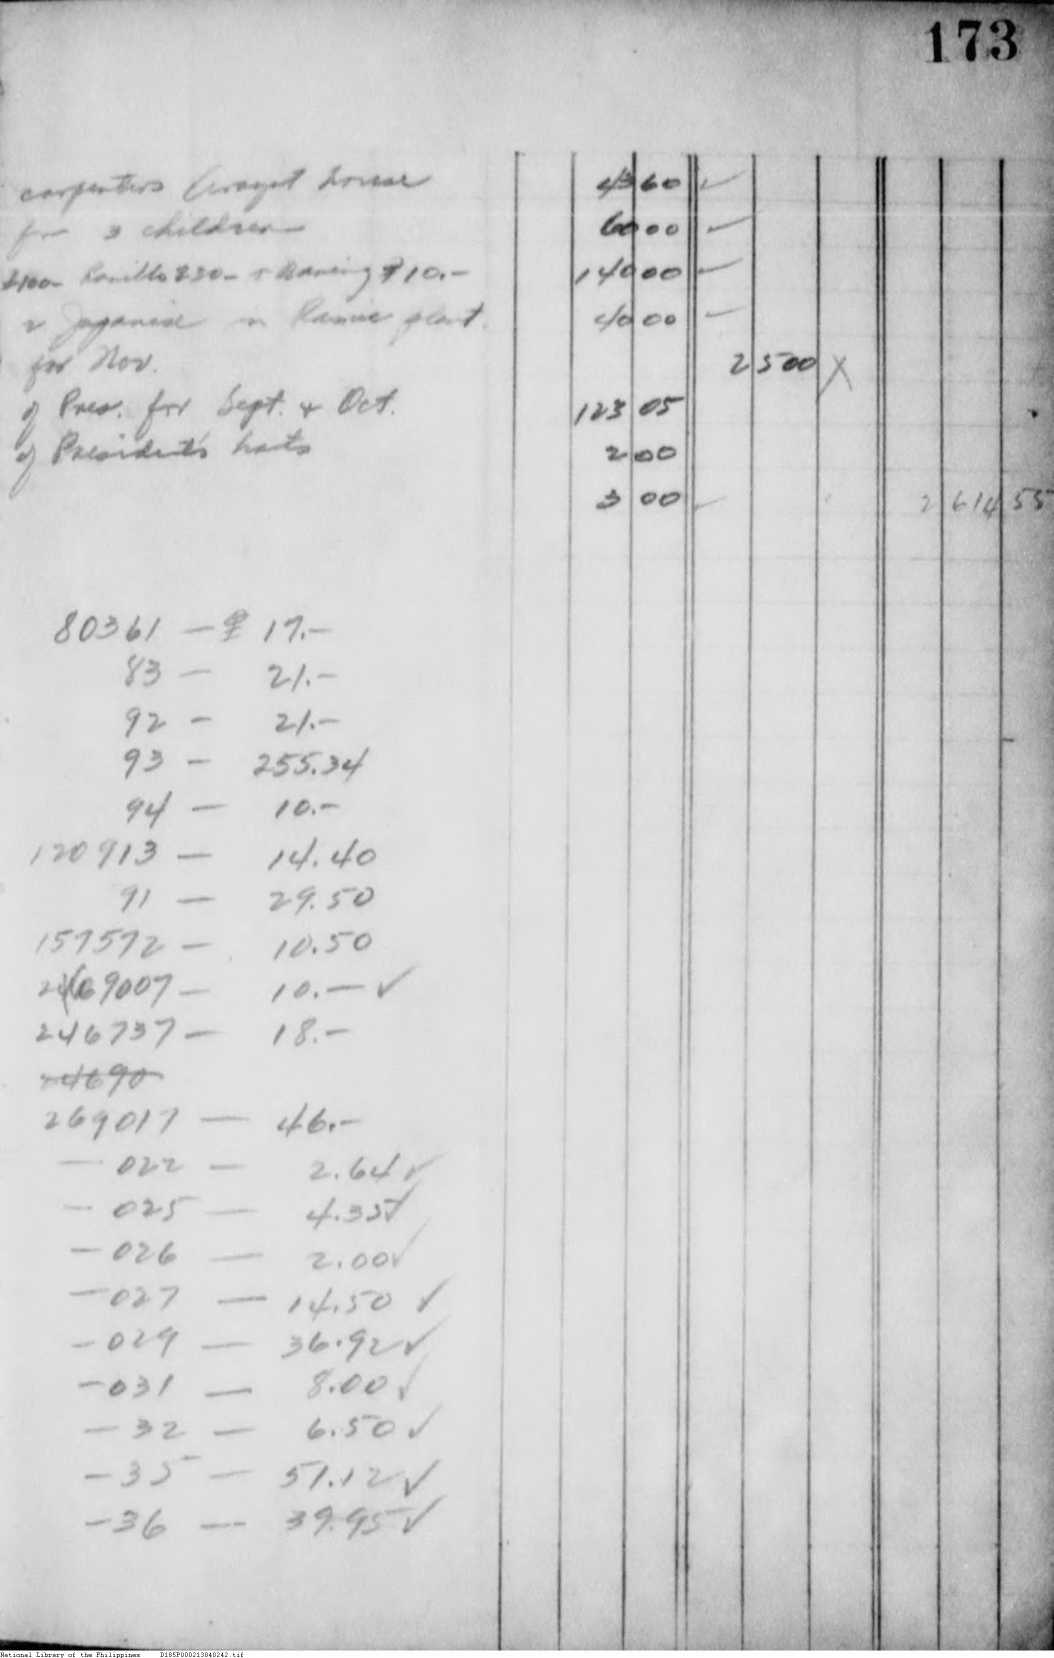 173
carpenters Arayat house 43 60 ✓
for 3 children 60 00 ✓
₱100- ₱30- + ₱10.- 140 00 ✓
2 Japanese in Ramie plant. 40 00 ✓
for Nov. 25 00 X
of Pres. for Sept. & Oct. 123 05
of President's hats 2 00
3 00 ✓ 2 614 55
80361 — ₱ 17.—
83 — 21.—
92 — 21.—
93 — 255.34
94 — 10.—
120913 — 14.40
91 — 29.50
157572 — 10.50
269007 — 10.— ✓
246737 — 18.—
24690
269017 — 46.—
— 022 — 2.64 ✓
— 025 — 4.35 ✓
— 026 — 2.00 ✓
— 027 — 14.50 ✓
— 029 — 36.92 ✓
— 031 — 8.00 ✓
— 32 — 6.50 ✓
— 35 — 51.12 ✓
— 36 — 39.95 ✓
National Library of the Philippines D185P000213840242.tif